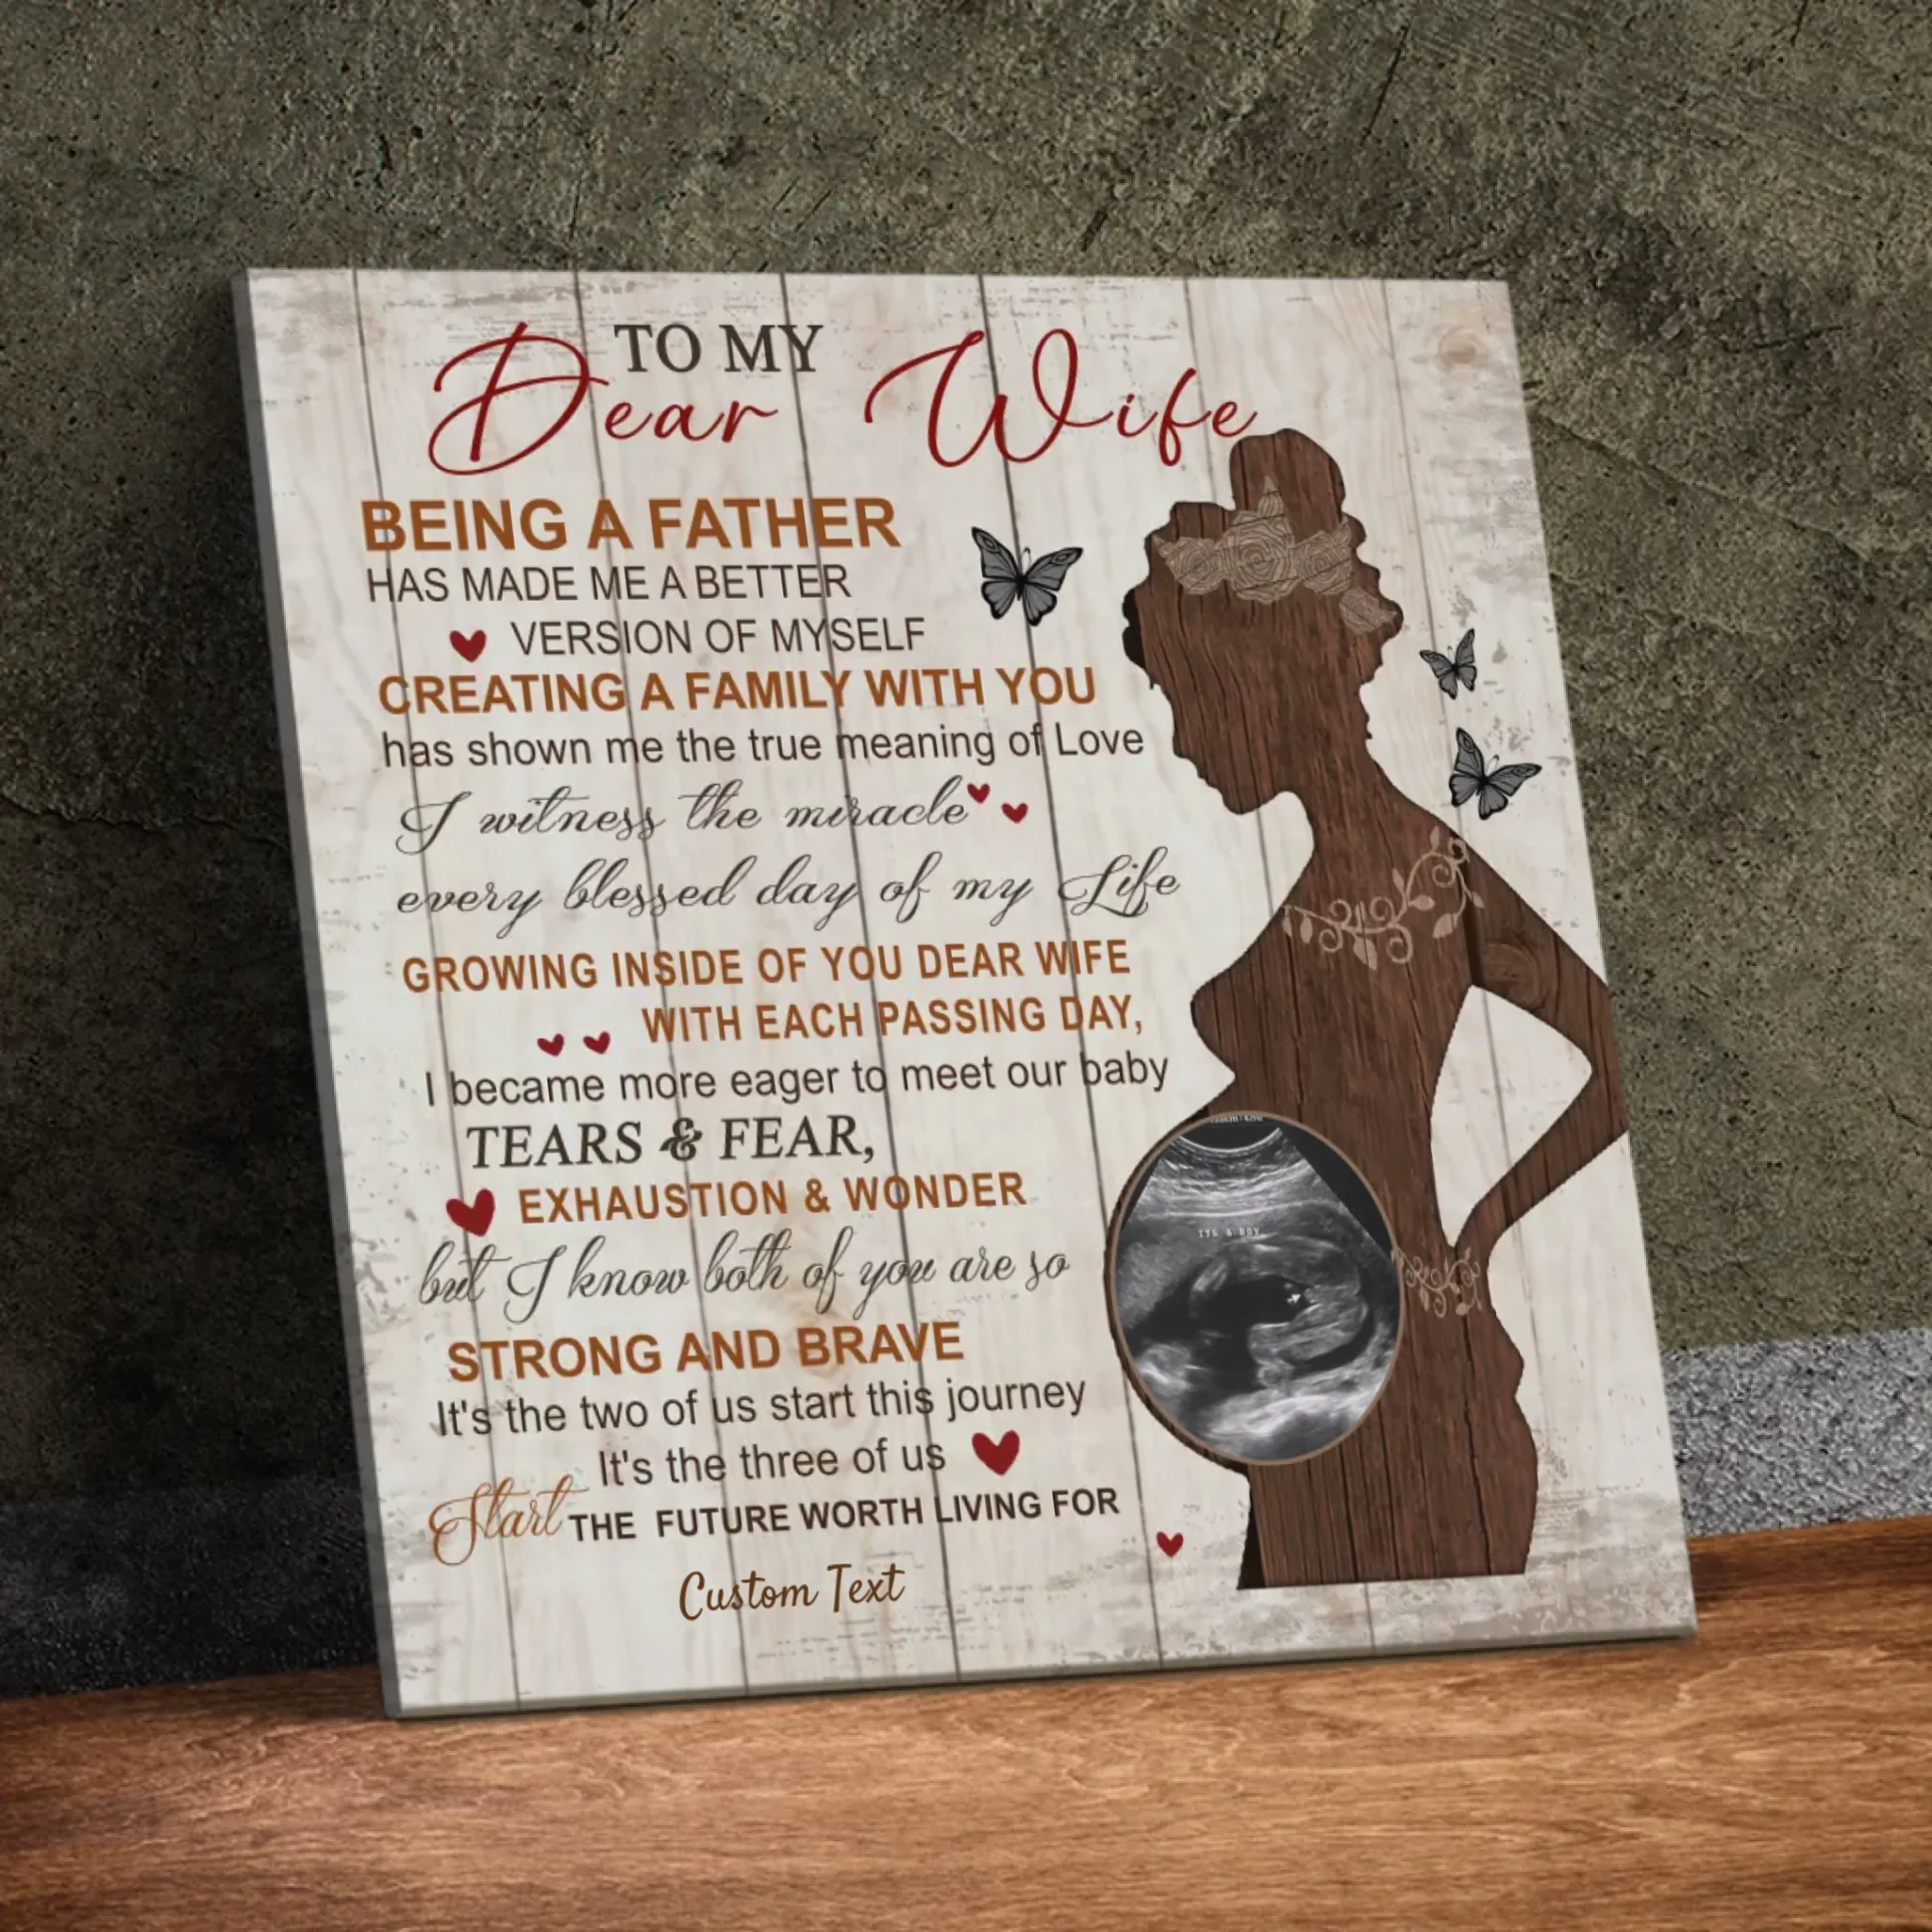 TO MY
Dear Wife
BEING A FATHER
HAS MADE ME A BETTER
VERSION OF MYSELF
CREATING A FAMILY WITH YOU
has shown me the true meaning of Love
I witness the miracle
every blessed day of my Life
GROWING INSIDE OF YOU DEAR WIFE
WITH EACH PASSING DAY,
I became more eager to meet our baby
TEARS & FEAR,
EXHAUSTION & WONDER
ITS A BOY
but I know both of you are so
STRONG AND BRAVE
It's the two of us start this journey
It's the three of us
Start THE FUTURE WORTH LIVING FOR
Custom Text